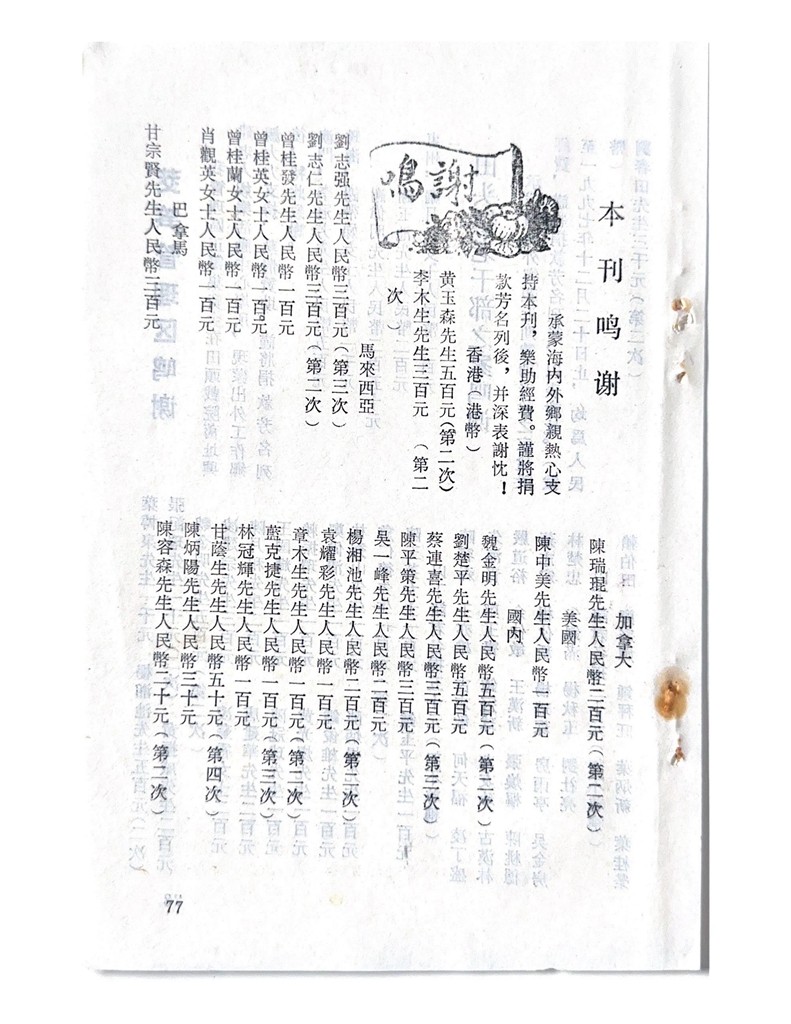 本刊鸣谢
鳴謝
承蒙海内外鄉親熱心支
持本刊，樂助經費。謹將捐
款芳名列後，并深表謝忱！
香港（港幣）
黄玉森先生五百元（第二次）
李木生先生三百元（第二
次）
馬來西亞
劉志强先生人民幣三百元（第三次）
劉志仁先生人民幣三百元（第二次）
曾桂發先生人民幣一百元
曾桂英女士人民幣一百元
曾桂蘭女士人民幣一百元
肖觀英女士人民幣一百元
巴拿馬
甘宗賢先生人民幣二百元
加拿大
陳瑞琨先生人民幣二百元（第二次）
美國
陳中美先生人民幣一百元
國内
魏金明先生人民幣五百元（第二次）
劉楚平先生人民幣五百元
蔡連喜先生人民幣三百元（第三次）
陳平策先生人民幣三百元
吴一峰先生人民幣二百元
楊湘池先生人民幣二百元（第二次）
袁耀彩先生人民幣一百元
章木生先生人民幣一百元（第二次）
藍克捷先生人民幣一百元（第三次）
林冠輝先生人民幣一百元
甘蔭生先生人民幣五十元（第四次）
陳炳陽先生人民幣三十元
陳容森先生人民幣二十元（第二次）
77